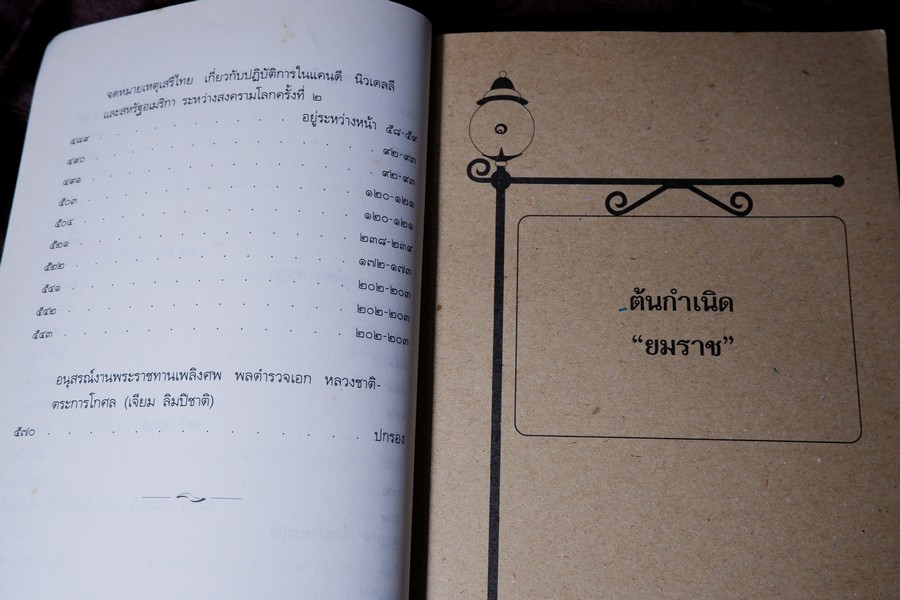 จดหมายเหตุเสรีไทย เกี่ยวกับปฏิบัติการในแคนดี นิวเดลลี
และสหรัฐอเมริกา ระหว่างสงครามโลกครั้งที่ ๒
อยู่ระหว่างหน้า ๕๘-๕๙
๔๘๙
๔๙๐ . . . . . . . . . . . . ๙๒-๙๓
๔๙๑ . . . . . . . . . . . . ๙๒-๙๓
๕๐๓ . . . . . . . . . . . . ๑๒๐-๑๒๑
๕๐๔ . . . . . . . . . . . . ๑๒๐-๑๒๑
๕๒๑ . . . . . . . . . . . . ๒๓๘-๒๓๙
๕๒๒ . . . . . . . . . . . . ๑๗๒-๑๗๓
๕๔๑ . . . . . . . . . . . . ๒๐๒-๒๐๓
๕๔๒ . . . . . . . . . . . . ๒๐๒-๒๐๓
๕๔๓ . . . . . . . . . . . . ๒๐๒-๒๐๓
อนุสรณ์งานพระราชทานเพลิงศพ พลตำรวจเอก หลวงชาติ-
ตระการโกศล (เจียม ลิมปิชาติ)
๕๗๐ . . . . . . . . . . . . ปกรอง
๑
ต้นกำเนิด
“ยมราช”